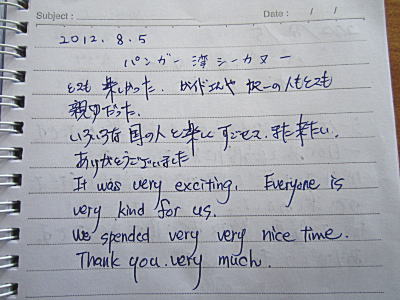 Subject : Date : / /
2012. 8. 5
パンガー湾シーカヌー
とても楽しかった。ガイドさんや カヌーの人もとても
親切だった。
いろいろな国の人と楽しくすごせて、また来たい。
ありがとうございました
It was very exciting. Everyone is
very kind for us.
We spended very very nice time.
Thank you very much.